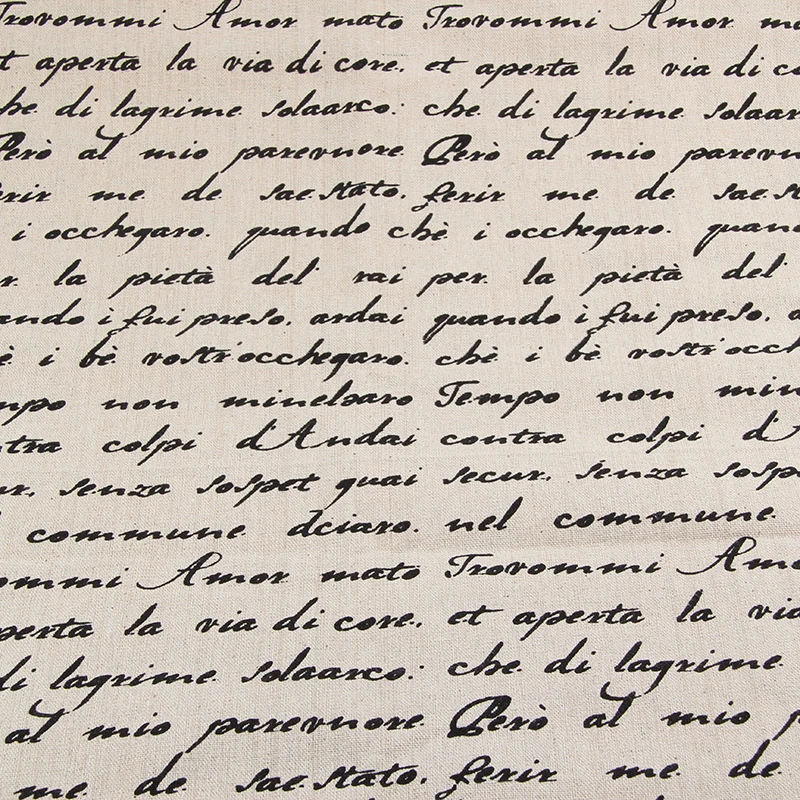 Trovommi Amor mato Trovommi Amor
et aperta la via di core. et aperta la via di
che di lagrime solaarco: che di lagrime
Però al mio parevnore Però al mio
ferir me de sae.stato. ferir me de
i occhegaro. quando chè i occhegaro.
la pietà del' rai per la pietà del'
i fui preso. ardai quando i fui preso.
i bè vostr'occhegaro. chè i bè
non minelsaro Tempo non
colpi d'Andai contra colpi
senza sospet quai secur. senza
commune dciaro. nel commune
Amor mato Trovommi
la via di core. et aperta la via
di lagrime solaarco: che di lagrime
al mio parevnore Però al mio
me de sae.stato. ferir me de